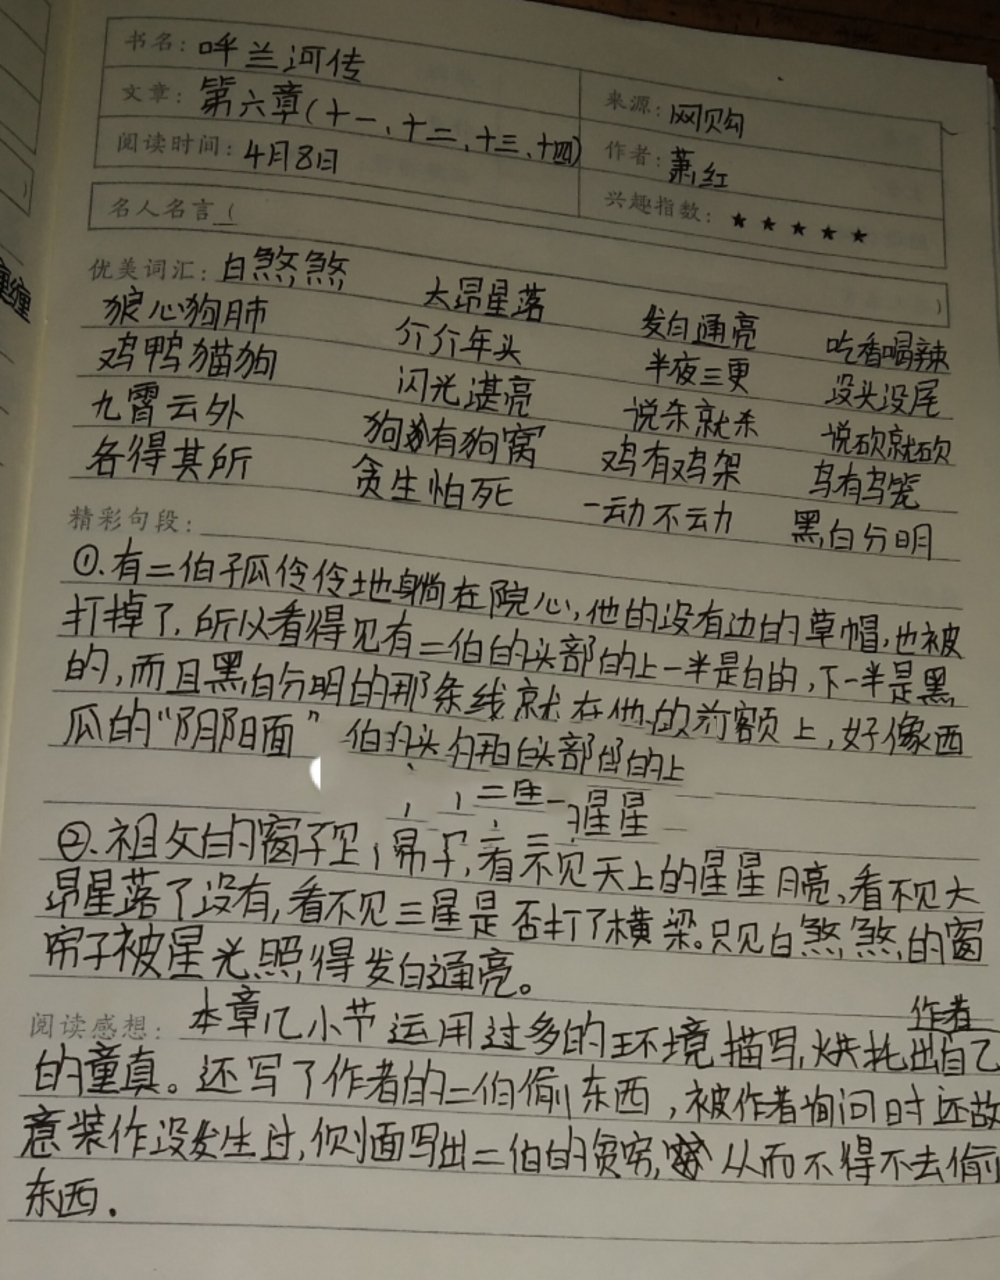 书名：呼兰河传
来源：网贝勾
文章：第六章(十一、十二、十三、十四)
作者：萧红
阅读时间：4月8日
兴趣指数：★★★★★
名人名言（ ）
优美词汇：白煞煞 大昂星落 发白通亮 吃香喝辣
狼心狗肺 介介年头 半夜三更 没头没尾
鸡鸭猫狗 闪光湛亮 说杀就杀 说砍就砍
九霄云外 狗有狗窝 鸡有鸡架 鸟有鸟笼
各得其所 贪生怕死 一动不动 黑白分明
精彩句段：
①.有二伯孤伶伶地躺在院心,他的没有边的草帽,也被
打掉了.所以看得见有二伯的头部的上一半是白的,下一半是黑
的,而且黑白分明的那条线就在他的前额上,好像西
瓜的“阴阳面”
星星
②.祖父的窗子 看不见天上的星星月亮、看不见大
昂星落了没有,看不见三星是否打了横梁。只见白煞煞的窗
帘子被星光照得发白通亮。
阅读感想：本章几小节运用过多的环境描写,烘托出作者自己
的童真。还写了作者的二伯偷东西,被作者询问时还故
意装作没发生过,侧面写出二伯的贫穷,从而不得不去偷
东西.